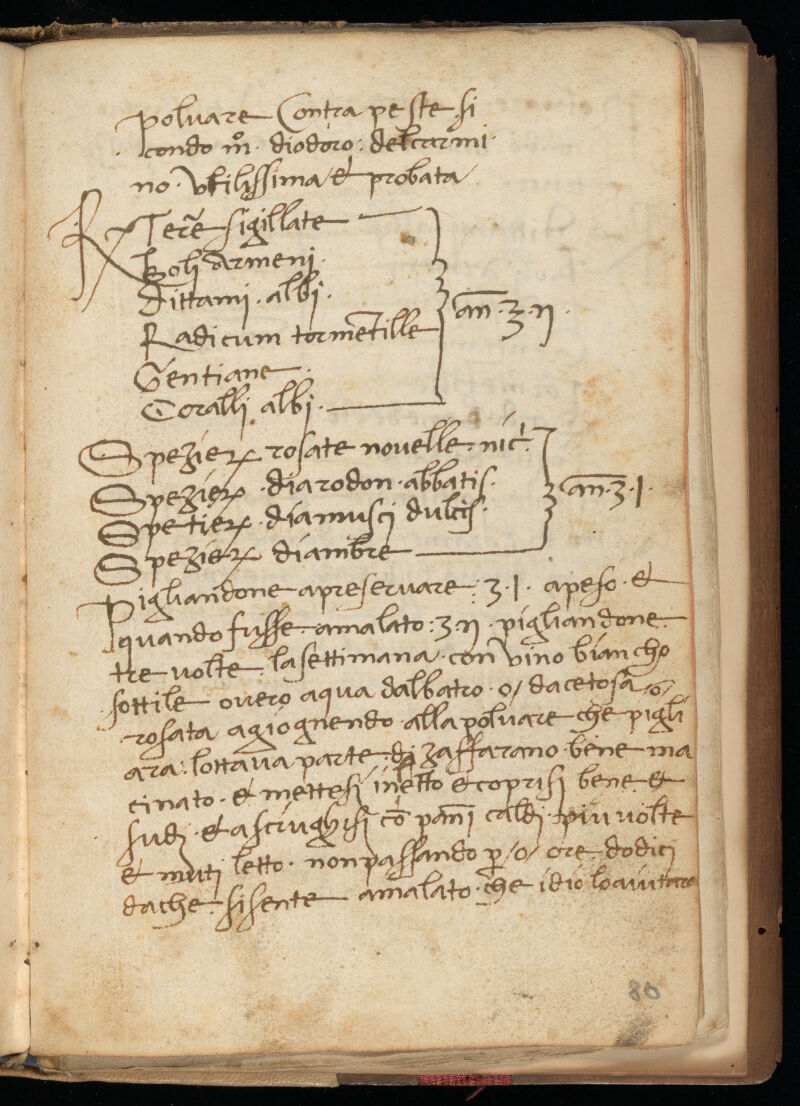 polvare Contra peste si
condo m.º diodoro: delcarmi
no. Vtilissima et probata
℞ Terrē sigillate
boli armeni.
dittami. albi.
Radicum tormētille
Gentiane.
Coralli albi.
an̄. ʒ. ij.
Spezieꝝ rosate novelle. nic̄.
Spezieꝝ. diarodon. abbatis.
Spetieꝝ. diamuscj dulcis.
Spezieꝝ diambre
an̄. ʒ. j.
Pigliandone apreservare: ʒ. j. apeso. et
quando fusse. amalato: ʒ. ij. pigliandone.
tre volte. lasettimana. con vino biancho
sottile overo aqua dalbatro. o/ dacetosa. o/
rosata agiognendo. allapolvare che pigli
ara: lottava parte: dj zaffarano. bene ma
cinato. et mettesi inletto et coprisi bene. et
sudj. et asciughisi cō pāni caldj. piu volte
et mutj letto. nonpassando p̱/o/ ore. dodicj
dache. sisente amalato. che idio loaiutara
80